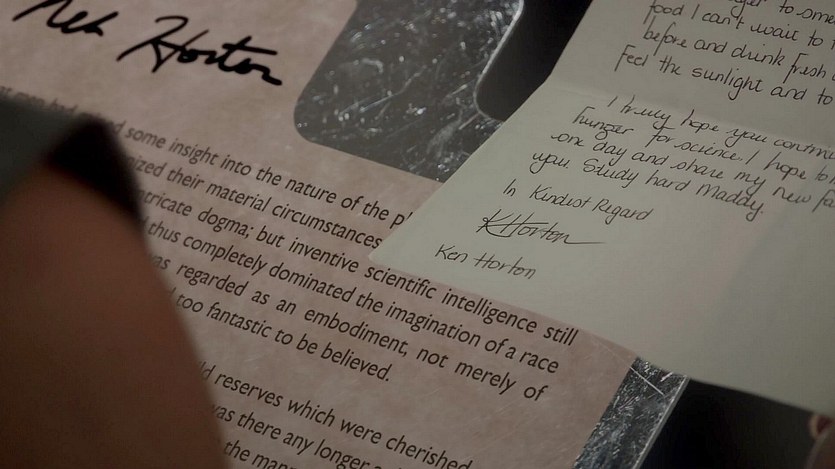 Ken Horton
some insight into the nature of the
their material circumstances
intricate dogma; but inventive scientific intelligence still
thus completely dominated the imagination of a race
as regarded as an embodiment, not merely of
too fantastic to be believed.
reserves which were cherished
was there any longer
the
to
food I can't wait to
before and drink fresh
feel the sunlight and to
I truly hope you
hunger for science. I hope to
one day and share my new
you. Study hard Maddy.
In Kindest Regard
KHorton
Ken Horton